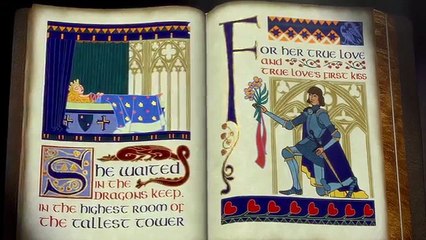 She waited
in the
dragons keep.
in the highest room of
the tallest tower
For her true love
and
true love's first kiss